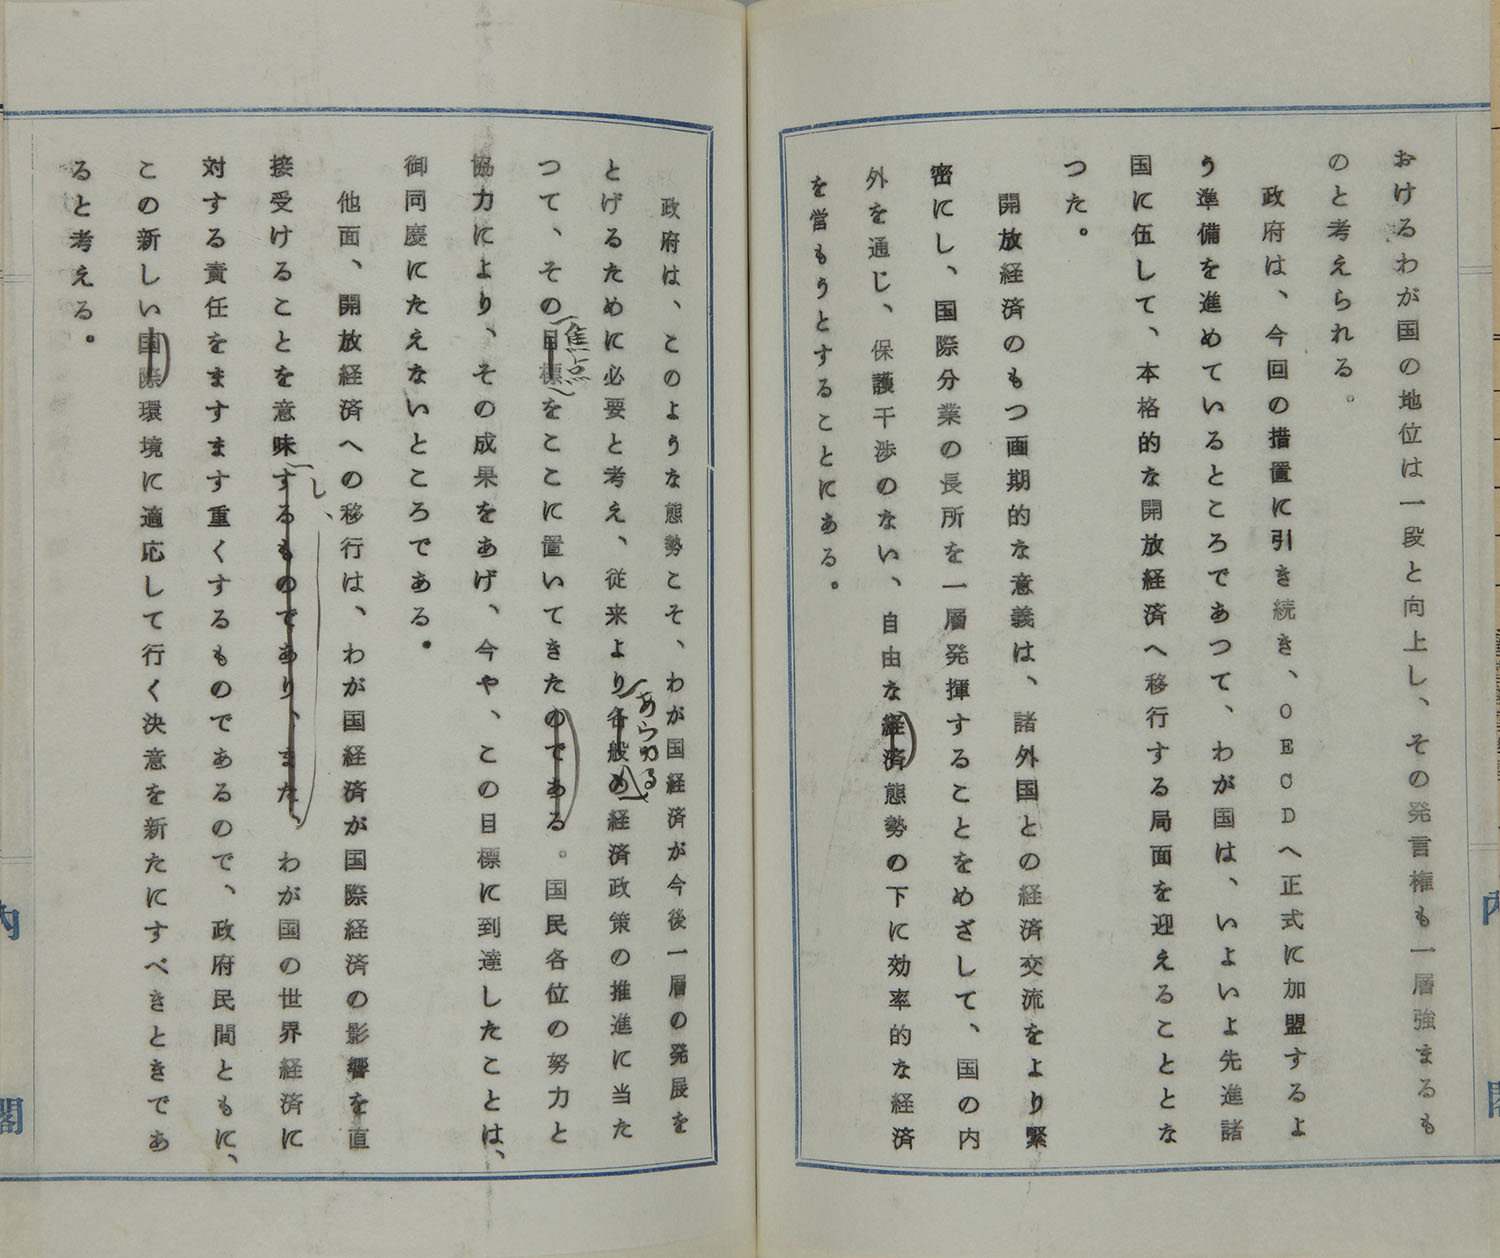 おけるわが国の地位は一段と向上し、その発言権も一層強まるも
のと考えられる。
政府は、今回の措置に引き続き、OECDへ正式に加盟するよ
う準備を進めているところであつて、わが国は、いよいよ先進諸
国に伍して、本格的な開放経済へ移行する局面を迎えることとな
つた。
開放経済のもつ画期的な意義は、諸外国との経済交流をより緊
密にし、国際分業の長所を一層発揮することをめざして、国の内
外を通じ、保護干渉のない、自由な経済態勢の下に効率的な経済
を営もうとすることにある。
内閣
政府は、このような態勢こそ、わが国経済が今後一層の発展を
とげるために必要と考え、従来より各般の経済政策の推進に当た
あらゆる
つて、その目標をここに置いてきたのである。国民各位の努力と
焦点
協力により、その成果をあげ、今や、この目標に到達したことは、
御同慶にたえないところである。
他面、開放経済への移行は、わが国経済が国際経済の影響を直
接受けることを意味するものであり、また、わが国の世界経済に
し、
対する責任をますます重くするものであるので、政府民間ともに、
この新しい国際環境に適応して行く決意を新たにすべきときであ
ると考える。
内閣